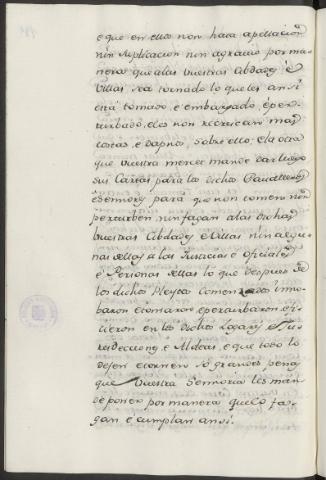 e que en ellos non haia apellacion
nin suplicacion nin agravio por ma
nera que a las vuestras Cibdades e
Villas sea tornado lo que les ansi
está tomado e embargado, é per
turbado, e los non recrescan mas
costas e dapnos, sobre ello: e la otra
que vuestra merced mande dar luego
sus Cartas para los dichos Cavalleros
e Sennores para que non tomen nin
perturben nin fagan a las dichas
vuestras Cibdades e Villas nin algu
nas dellas a las Justicias e oficiales
e Personas dellas lo que despues de
los dichos Pleytos comenzados inno
baron e tomaron e perturbaron e fi
cieron en los dichos Logares e Ju
resdicciones e Aldeas, e que todo lo
dejen e tornen so grandes penas
que vuestra Sennoria les man
de poner por manera que lo fa
gan e cumplan ansi.